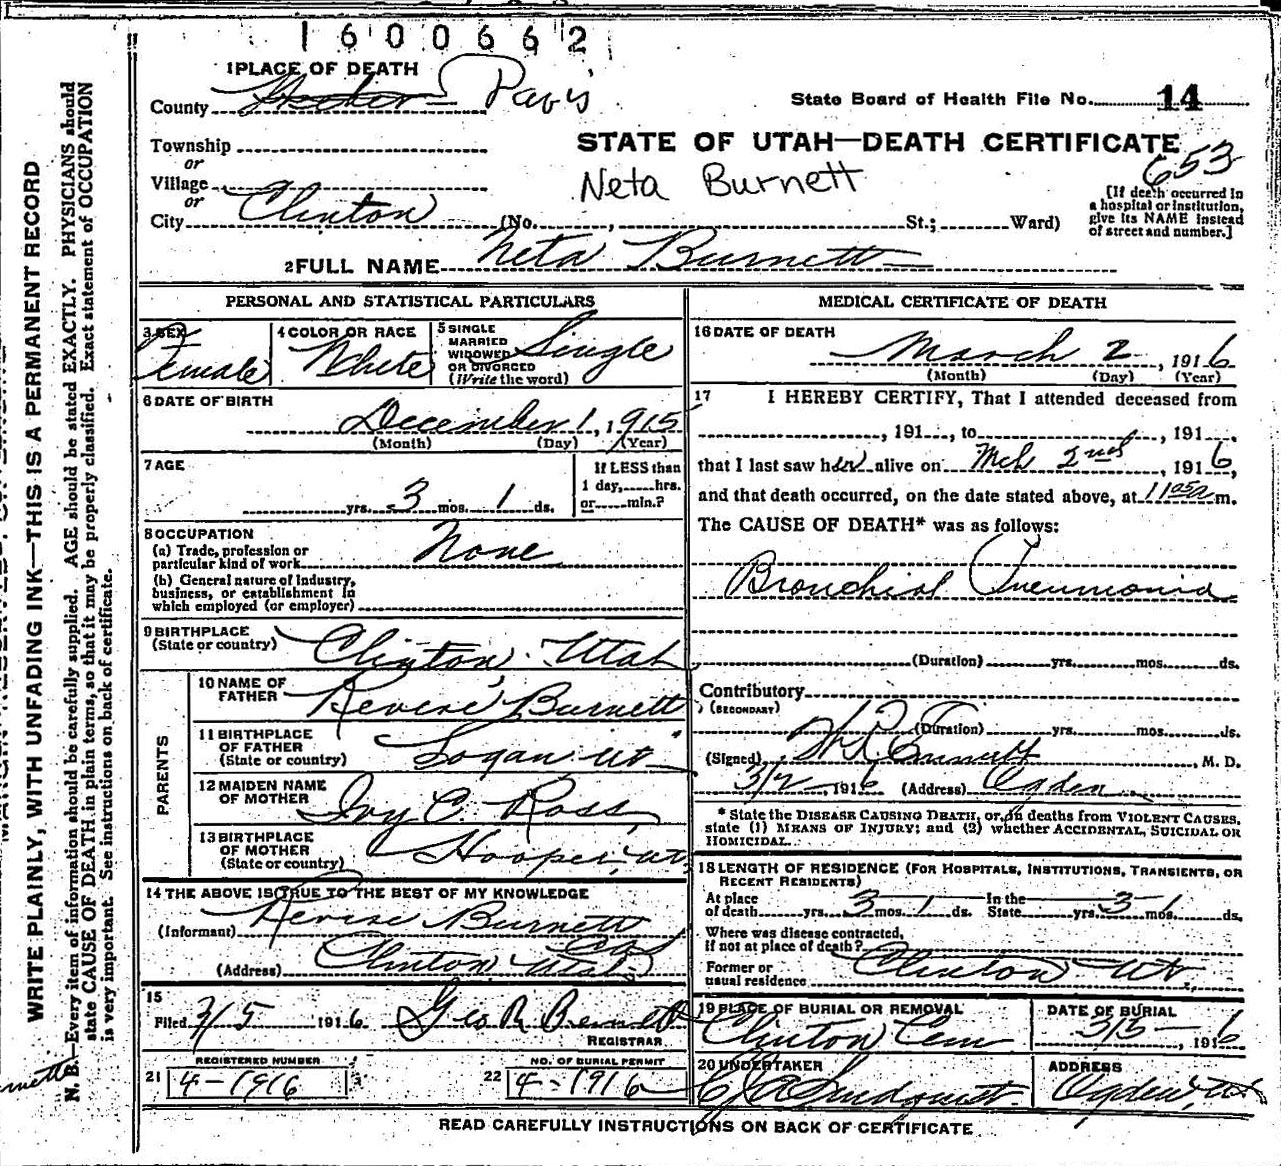 1600662
1 PLACE OF DEATH
County Weber Davis
State Board of Health File No. 14
Township
or
Village
or
City Clinton
STATE OF UTAH—DEATH CERTIFICATE
653
Neta Burnett
(No. , St.; Ward)
[If death occurred in
a hospital or institution,
give its NAME instead
of street and number.]
2 FULL NAME Neta Burnett
PERSONAL AND STATISTICAL PARTICULARS
3 SEX Female
4 COLOR OR RACE White
5 SINGLE
MARRIED
WIDOWED
OR DIVORCED
(Write the word)
Single
6 DATE OF BIRTH
December 1, 1915
(Month) (Day) (Year)
7 AGE
yrs. 3 mos. 1 ds.
If LESS than
1 day, hrs.
or min.?
8 OCCUPATION
(a) Trade, profession or
particular kind of work None
(b) General nature of industry,
business, or establishment in
which employed (or employer)
9 BIRTHPLACE
(State or country) Clinton, Utah
PARENTS
10 NAME OF
FATHER Revere Burnett
11 BIRTHPLACE
OF FATHER
(State or country) Logan Ut
12 MAIDEN NAME
OF MOTHER Ivy C. Ross
13 BIRTHPLACE
OF MOTHER
(State or country) Hooper, Ut
14 THE ABOVE IS TRUE TO THE BEST OF MY KNOWLEDGE
(Informant) Burnett
(Address) Clinton Utah
15
Filed 3/5 1916 Geo R Bennett
REGISTRAR
REGISTERED NUMBER
21 4-1916
NO. OF BURIAL PERMIT
22 4-1916
MEDICAL CERTIFICATE OF DEATH
16 DATE OF DEATH
March 2, 1916
(Month) (Day) (Year)
17 I HEREBY CERTIFY, That I attended deceased from
, 191 , to , 191 .
that I last saw her alive on Mch 2nd, 1916,
and that death occurred, on the date stated above, at 1105a m.
The CAUSE OF DEATH* was as follows:
Bronchial Pneumonia
(Duration) yrs. mos. ds.
Contributory
(SECONDARY)
(Duration) yrs. mos. ds.
(Signed) , M. D.
3/2, 1916 (Address) Ogden
* State the DISEASE CAUSING DEATH, or, in deaths from VIOLENT CAUSES,
state (1) MEANS OF INJURY; and (2) whether ACCIDENTAL, SUICIDAL OR
HOMICIDAL.
18 LENGTH OF RESIDENCE (FOR HOSPITALS, INSTITUTIONS, TRANSIENTS, OR
RECENT RESIDENTS)
At place
of death yrs. 3 mos. 1 ds. In the
State yrs. 3 mos. 1 ds.
Where was disease contracted,
if not at place of death?
Former or
usual residence Clinton Ut
19 PLACE OF BURIAL OR REMOVAL
Clinton Cem
DATE OF BURIAL
3/5, 1916
20 UNDERTAKER
Lindquist
ADDRESS
Ogden, Ut
READ CAREFULLY INSTRUCTIONS ON BACK OF CERTIFICATE
WRITE PLAINLY, WITH UNFADING INK—THIS IS A PERMANENT RECORD
N. B.—Every item of information should be carefully supplied. AGE should be stated EXACTLY. PHYSICIANS should
state CAUSE OF DEATH in plain terms, so that it may be properly classified. Exact statement of OCCUPATION
is very important. See instructions on back of certificate.